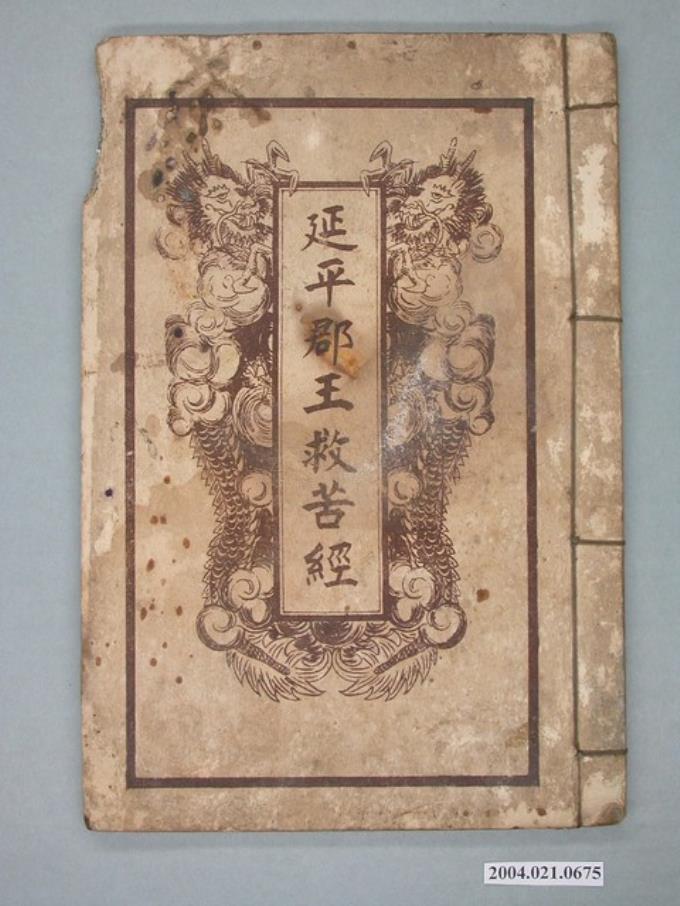 延平郡王救苦經
2004.021.0675